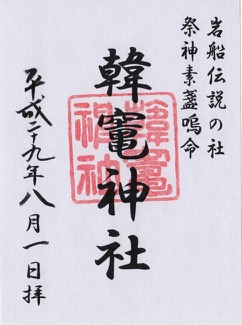 岩船伝説の社
祭神素盞嗚命
韓竃神社
平成二十九年八月一日拝